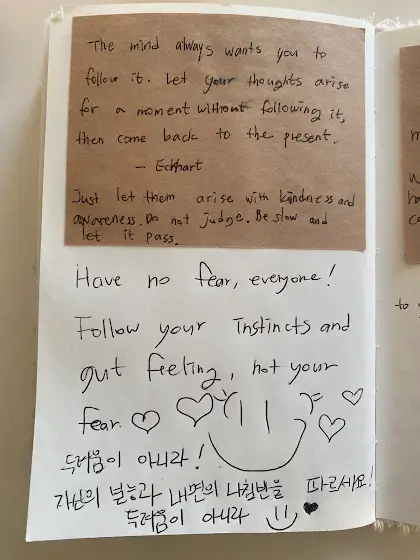 The mind always wants you to
follow it. Let your thoughts arise
for a moment without following it,
then come back to the present.
— Eckhart
Just let them arise with kindness and
awareness. Do not judge. Be slow and
let it pass.
Have no fear, everyone!
Follow your instincts and
gut feeling, not your
fear.
두려움이 아니라!
자신의 본능과 내면의 나침반을 따르세요!
두려움이 아니라
to